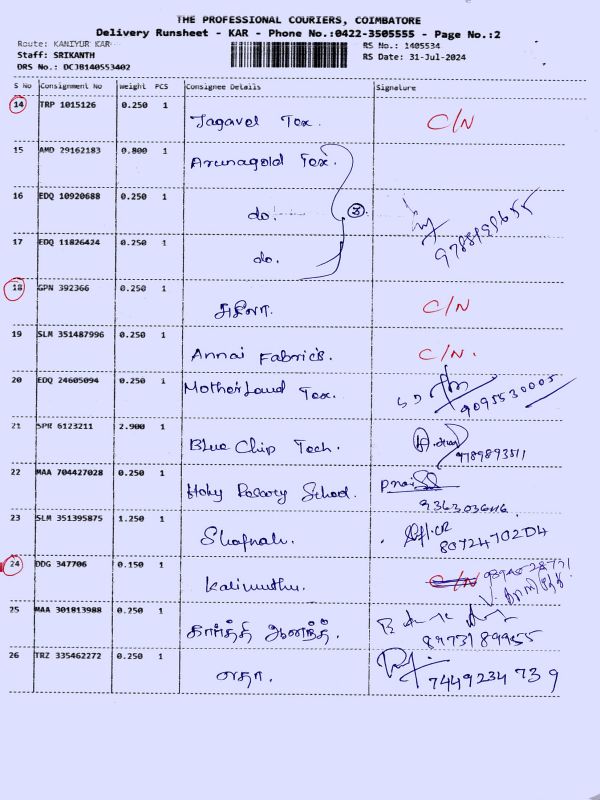 THE PROFESSIONAL COURIERS, COIMBATORE
Delivery Runsheet - KAR - Phone No.:0422-3505555 - Page No.:2
Route: KANIYUR KAR
RS No.: 1405534
Staff: SRIKANTH
RS Date: 31-Jul-2024
DRS No.: DCJB140553402
S No Consignment No Weight PCS Consignee Details Signature
14 TRP 1015126 0.250 1
Jagavel Tex. C/N
15 AMD 29162183 0.800 1
Arunagold Tex.
16 EDQ 10920688 0.250 1
do. 3
17 EDQ 11826424 0.250 1
do.
18 GPN 392366 0.250 1
C/N
19 SLM 351487996 0.250 1
Annai Fabrics. C/N.
20 EDQ 24605094 0.250 1
Mother Land Tex. 9095530005
21 SPR 6123211 2.900 1
Blue Chip Tech. 9789893511
22 MAA 704427028 0.250 1
Holy Rosary School.
23 SLM 351395875 1.250 1
8072470204
24 DDG 347706 0.150 1
Kalimuthu. C/N
25 MAA 301813988 0.250 1
கார்த்தி ஆனந்த்.
26 TRZ 335462272 0.250 1
லதா. 7449234739